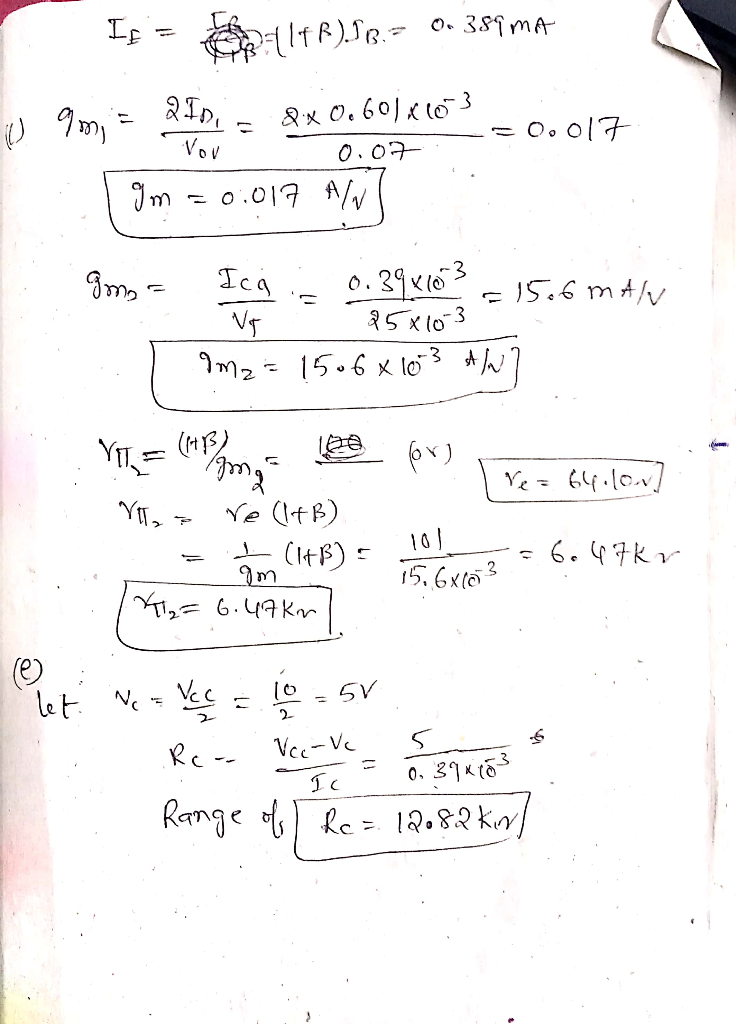 I_E = (1+β)I_B = 0.389 mA
g_m1 = 2I_D1 / V_ov = 2 x 0.601 x 10^-3 / 0.07 = 0.017
g_m = 0.017 A/V
g_m2 = I_CQ / V_T = 0.39 x 10^-3 / 25 x 10^-3 = 15.6 mA/V
g_m2 = 15.6 x 10^-3 A/V
r_π2 = (1+β)/g_m2 = (or) r_e = 64.10 Ω
r_π2 = r_e (1+β)
= 1/g_m (1+β) = 101 / 15.6 x 10^-3 = 6.47 k Ω
r_π2 = 6.47 KΩ
(e)
let V_c = V_cc / 2 = 10 / 2 = 5V
R_C = V_cc - V_c / I_C = 5 / 0.39 x 10^-3
Range of R_C = 12.82 KΩ